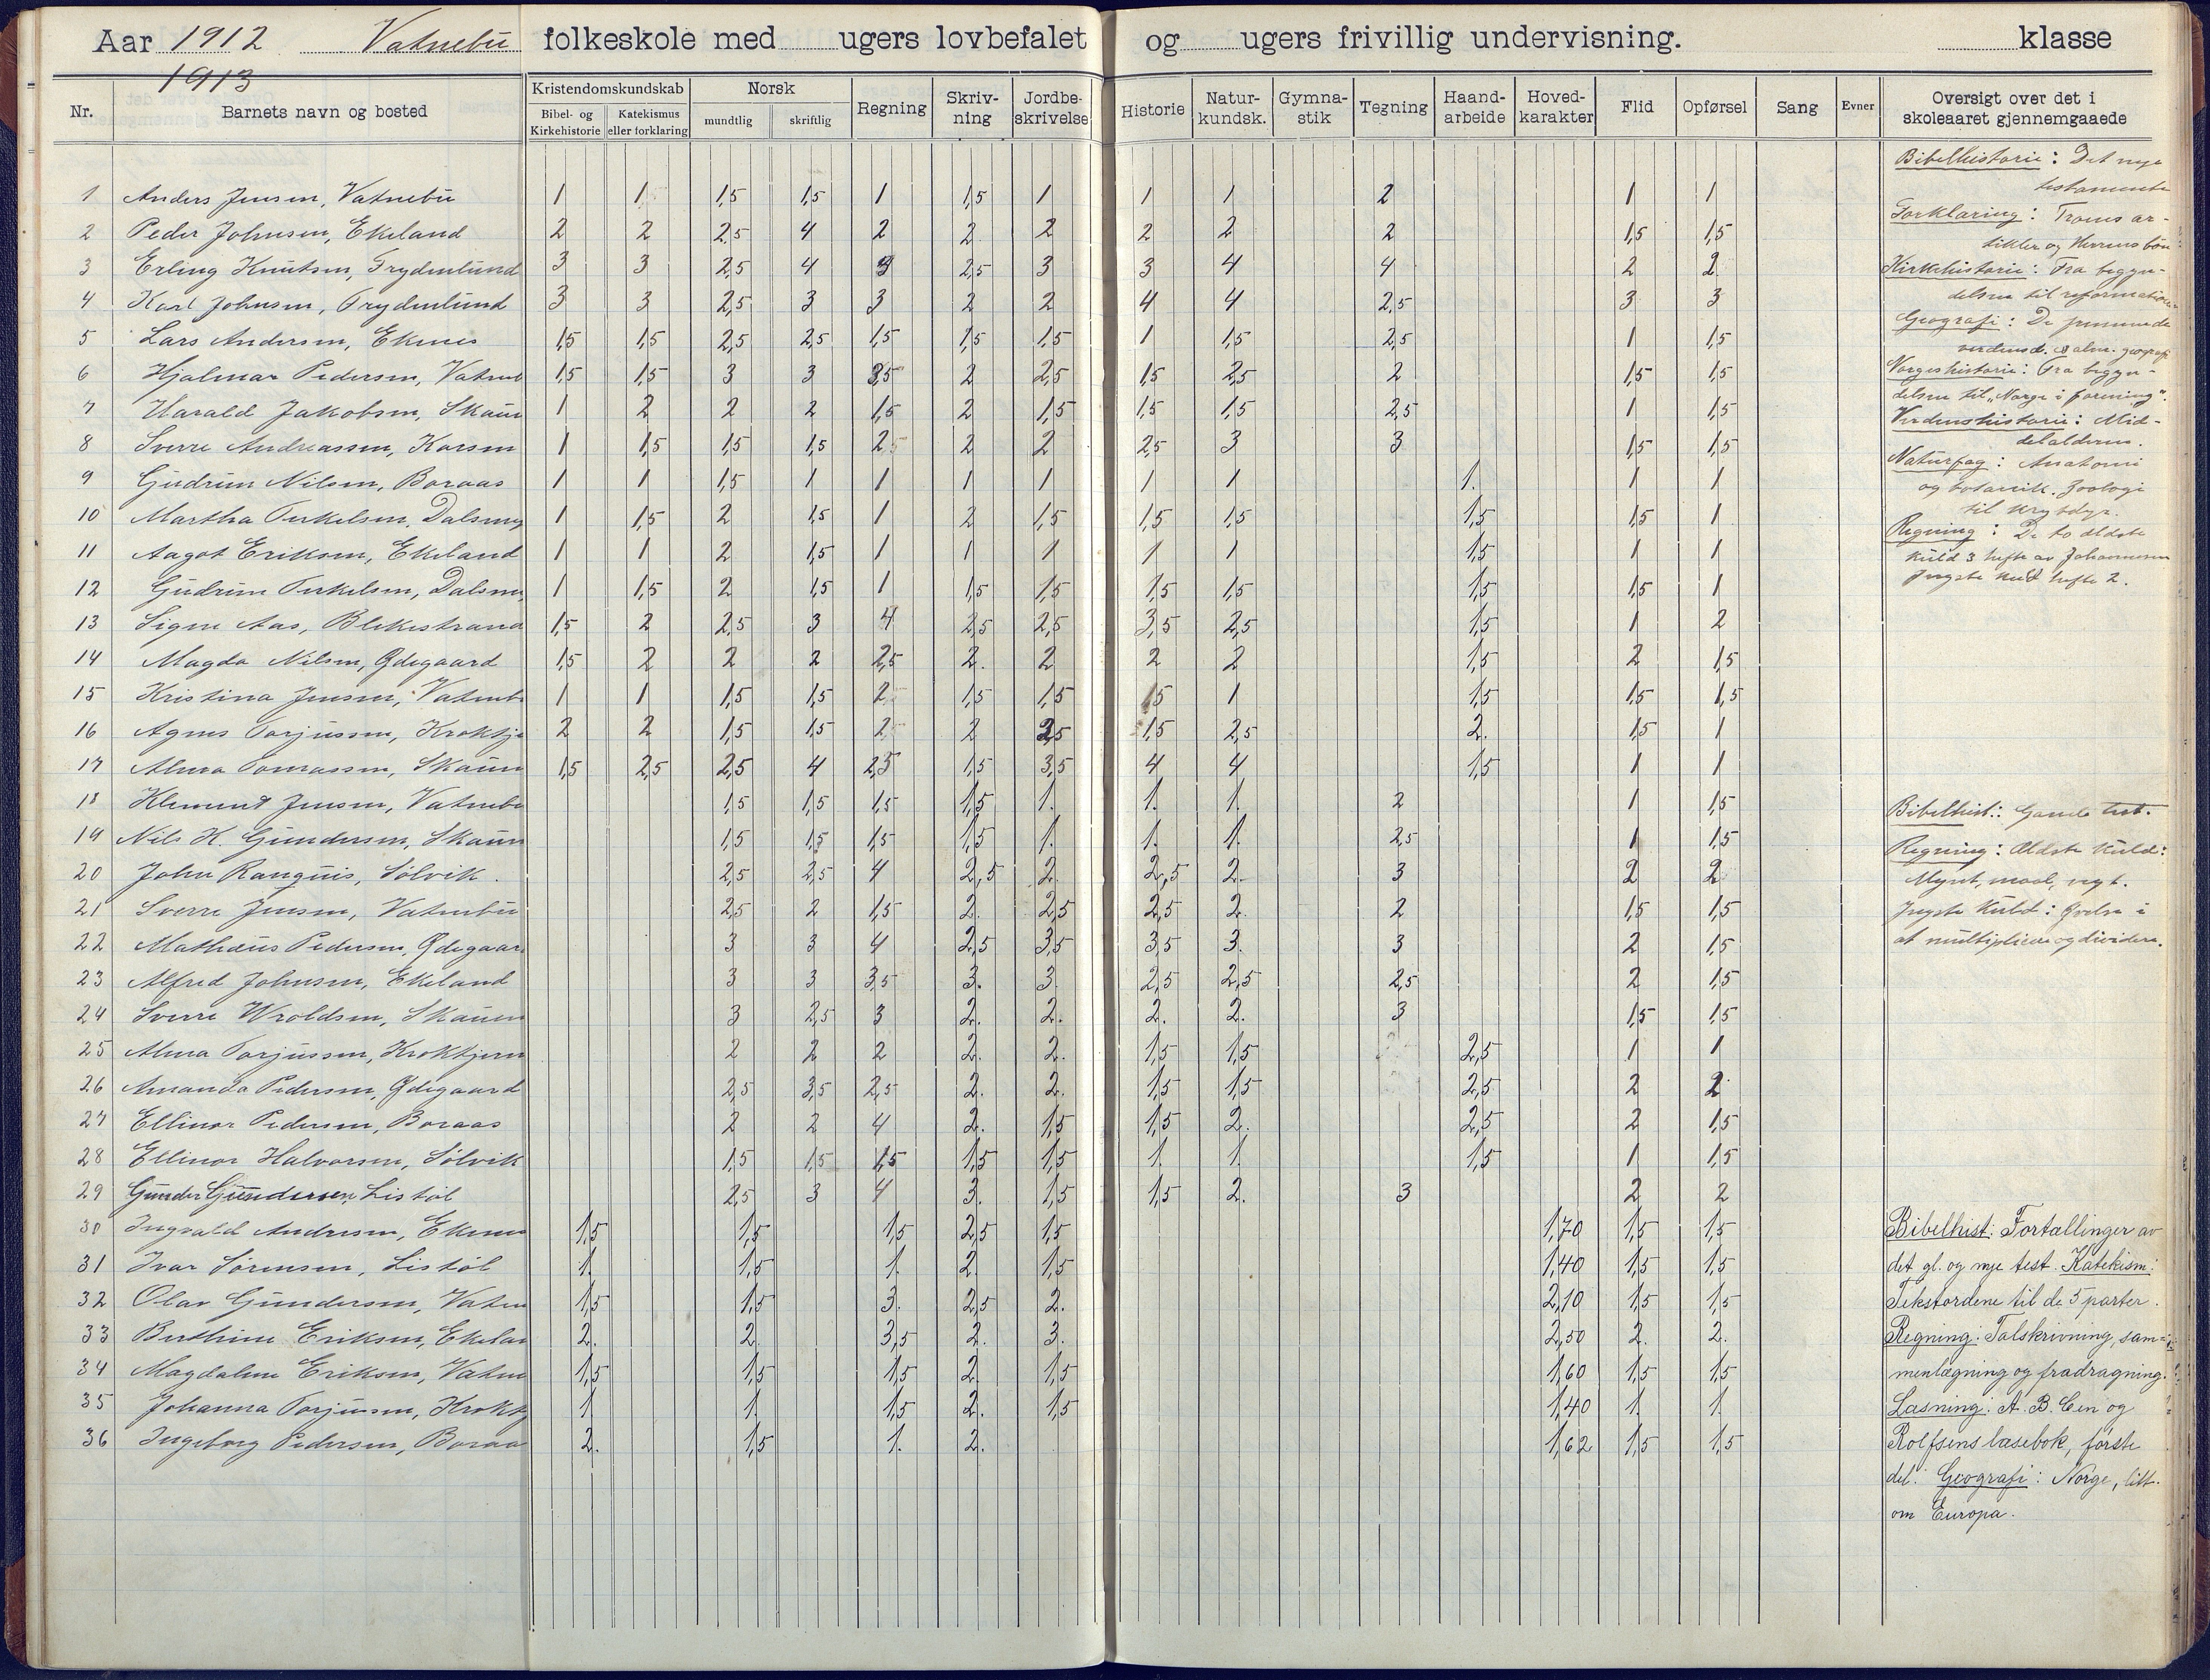 Aar 1912 Vatnebu folkeskole med ugers lovbefalet og ugers frivillig undervisning. klasse
1913
Nr. Barnets navn og bosted Kristendomskundskab Bibel- og Kirkehistorie Katekismus eller forklaring Norsk mundtlig skriftlig Regning Skriv-ning Jordbe-skrivelse Historie Natur-kundsk. Gymna-stik Tegning Haand-arbeide Hoved-karakter Flid Opførsel Sang Evner Oversigt over det i skoleaaret gjennemgaaede
1 Anders Jensen, Vatnebu 1 1 1,5 1,5 1 1,5 1 1 1 2 1 1
2 Peder Johnsen, Ekeland 2 2 2,5 4 2 2 2 2 2 2 1,5 1,5
3 Erling Knutsen, Frydenlund 3 3 2,5 4 3 2,5 3 3 4 4 2 2
4 Karl Johnsen, Frydenlund 3 3 2,5 3 3 2 2 4 4 2,5 3 3
5 Lars Andersen, Ekenes 1,5 1,5 2,5 2,5 1,5 1,5 1,5 1 1,5 2,5 1 1,5
6 Hjalmar Pedersen, Vatneb 1,5 1,5 3 3 3,5 2 2,5 1,5 2,5 2 1,5 1,5
7 Harald Jakobsen, Skaun 1 2 2 2 1,5 2 1,5 1,5 1,5 2,5 1 1,5
8 Sverre Andreassen, Korsen 1 1,5 1,5 1,5 2,5 2 2 2,5 3 3 1,5 1,5
9 Gudrun Nilsen, Boraas 1 1 1,5 1 1 1 1 1 1 1. 1 1
10 Martha Terkelsen, Dalsmy 1 1,5 2 1,5 1 2 1,5 1,5 1,5 1,5 1,5 1
11 Aagot Eriksen, Ekeland 1 1 2 1,5 1 1 1 1 1 1,5 1 1
12 Gudrun Terkelsen, Dalsmy 1 1,5 2 1,5 1 1,5 1,5 1,5 1,5 1,5 1,5 1
13 Signe Aas, Blekestrand 1,5 2 2,5 3 4 2,5 2,5 3,5 2,5 1,5 1 2
14 Magda Nilsen, Ødegaard 1,5 2 2 2 2,5 2. 2 2 2 1,5 2 1,5
15 Kristina Jensen, Vatneb 1 1 1,5 1,5 2 1,5 1,5 1,5 1 1,5 1,5 1,5
16 Agnes Torjussen, Kroktje 2 2 1,5 1,5 2 2 2,5 1,5 2,5 2. 1,5 1
17 Alma Tomassen, Skaun 1,5 2,5 2,5 4 2,5 1,5 3,5 4 4 1,5 1 1
18 Klement Jensen, Vatnebu 1,5 1,5 1,5 1,5 1. 1. 1. 2 1 1,5
19 Nils K. Gundersen, Skaun 1,5 1,5 1,5 1,5 1. 1. 1. 2,5 1 1,5
20 John Ranguis, Sølvik. 2,5 2,5 4 2,5 2. 2,5 2. 3 2 2
21 Sverre Jensen, Vatnebu 2,5 2 1,5 2. 2,5 2,5 2. 2 1,5 1,5
22 Mathæus Pedersen, Ødegaar 3 3 4 2,5 3,5 3,5 3. 3 2 1,5
23 Alfred Johnsen, Ekeland 3 3 3,5 3. 3 2,5 2,5 2,5 2 1,5
24 Sverre Wroldsen, Skauen 3 2,5 3 2. 2. 2. 2. 3 1,5 1,5
25 Alma Torjussen, Kroktjern 2 2 2 2. 2. 1,5 1,5 2,5 1 1
26 Amanda Pedersen, Ødegaard 2,5 3,5 2,5 2. 2. 1,5 1,5 2,5 2 2
27 Ellinor Pedersen, Boraas 2 2 4 2. 1,5 1,5 2. 2,5 2 1,5
28 Ellinor Halvorsen, Sølvik 1,5 1,5 1,5 1,5 1,5 1. 1. 1,5 1 1,5
29 Gunder Gundersen, Listøl 2,5 3 4 3. 1,5 1,5 2. 3 2 2
30 Ingvald Andersen, Ekenes 1,5 1,5 1,5 2,5 1,5 1,70 1,5 1,5
31 Ivar Sørensen, Listøl 1. 1,5 1. 2. 1,5 1,40 1,5 1,5
32 Olav Gundersen, Vatne 1,5 1,5 3. 2,5 2. 2,10 1,5 1,5
33 Berthine Eriksen, Ekelan 2. 2. 3,5 2. 3. 2,50 2. 2.
34 Magdalene Eriksen, Vatne 1,5 1,5 1,5 2. 1,5 1,60 1,5 1,5
35 Johanna Torjussen, Kroktj 1 1. 1,5 2. 1,5 1,40 1. 1.
36 Ingeborg Pedersen, Boraa 2. 1,5 1. 2. 1,62 1,5 1,5
Bibelhistorie: Det nye
testamente
Forklaring: Troens ar-
tikler og Herrens bøn
Kirkehistorie: Fra begyn-
delsen til reformationen
Geografi: De fremmede
verdensd. & alm. geografi
Norgeshistorie: Fra begyn-
delsen til "Norge i forening".
Verdenshistorie: Mid-
delalderen.
Naturfag: Anatomi
og botanik. Zoologi
til krybdyr.
Regning: De to ældste
kuld 3 hefte av Johannesen
Yngste kuld hefte 2.
Bibelhist.: Gamle test.
Regning: Ældste kuld:
Mynt, maal, vegt.
Yngste kuld: Øvelse i
at multiplicere og dividere.
Bibelhist: Fortællinger av
det gl. og nye test. Katekism:
Tekstordene til de 5 parter.
Regning: Talskrivning, sam-
menlægning og fradragning.
Læsning: A. B. C en og
Rolfsens læsebok, første
del. Geografi: Norge, litt
om Europa.